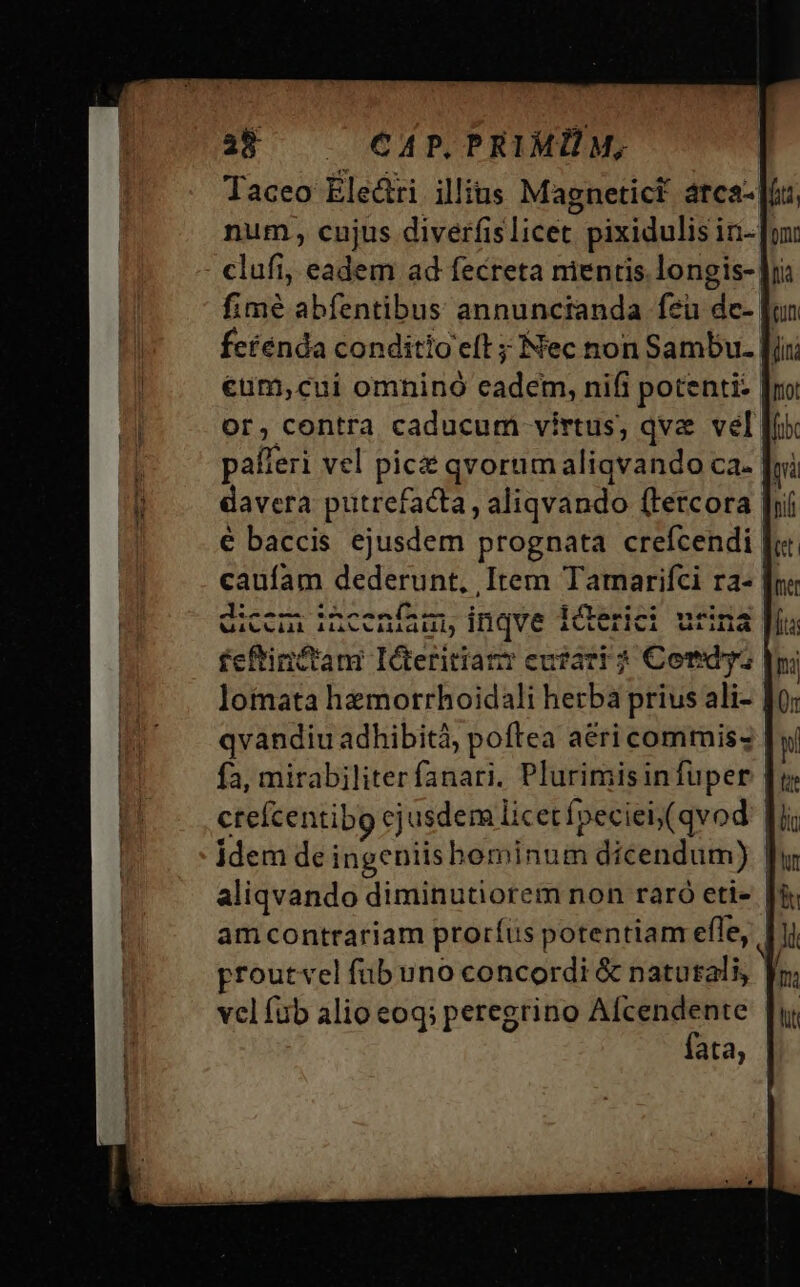 28 CAP. PRIMUM,
Taceo Electri illius Magneticî arca-
num, cujus diverſis licet pixidulis in-
cluſi, eadem ad ſecreta mentis longis-
ſimè abſentibus annuncianda ſeu de-
ferenda conditio eſt; Nec non Sambu-
cum, cui omninò eadem, niſi potenti-
or, contra caducum virtus, qvæ vel
paſſeri vel picæ qvorum aliqvando ca-
davera putrefacta, aliqvando ſtercora
è baccis ejusdem prognata creſcendi
cauſam dederunt, Item Tamariſci ra-
dicem incenſam, inqve Icterici urina
reſtinctam Icteritiam curari; Condy-
lomata hæmorrhoidali herba prius ali-
qvandiu adhibitâ, poſtea aëri commis-
ſa, mirabiliter ſanari. Plurimis inſuper
creſcentibꝯ ejusdem licet ſpeciei, (qvod
idem de ingeniis hominum dicendum)
aliqvando diminutiorem non rarò eti-
am contrariam prorſus potentiam eſſe,
prout vel ſub uno concordi & naturali,
vel ſub alio eoq; peregrino Aſcendente
ſata,